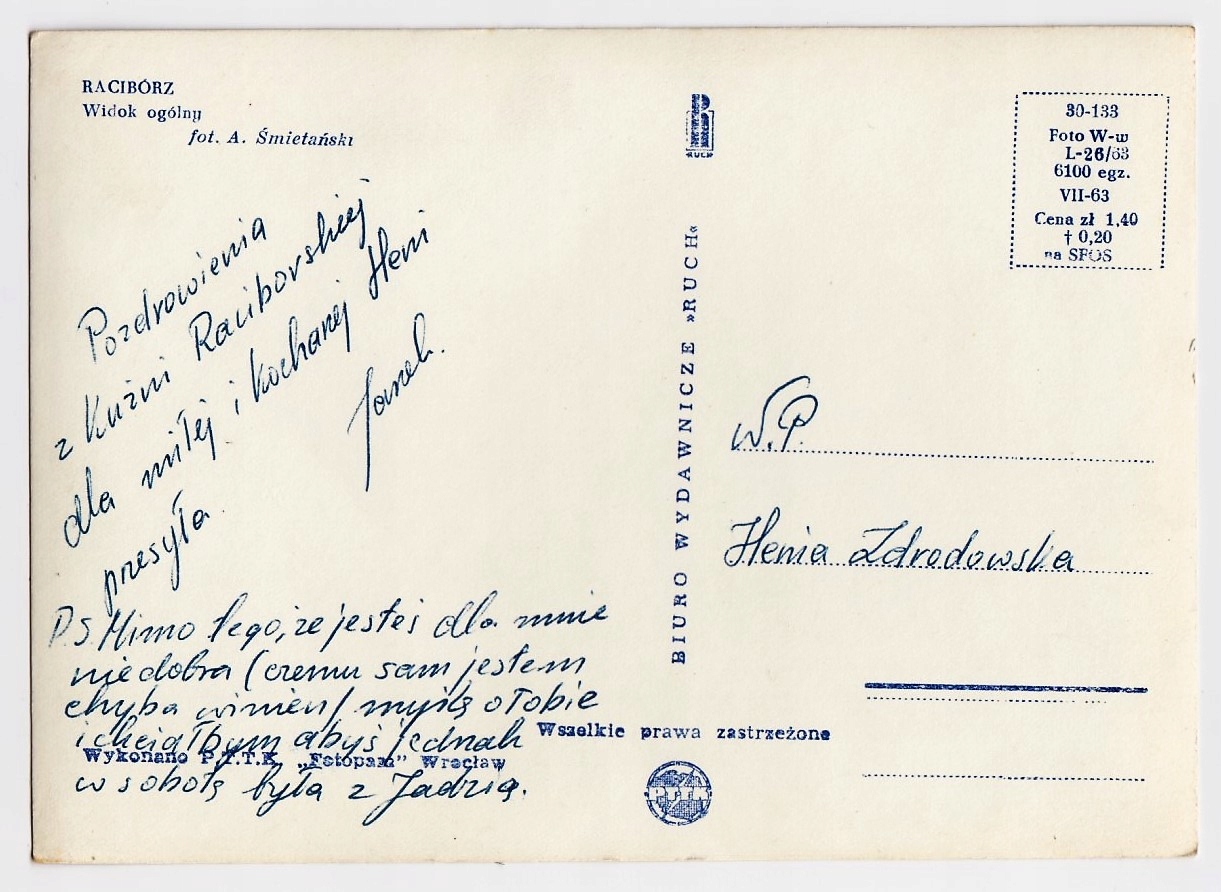 RACIBÓRZ
Widok ogólny
fot. A. Śmietański
Pozdrowienia
z Kuźni Raciborskiej
dla miłej i kochanej Heni
przesyła
Janek.
P.S. Mimo tego, że jesteś dla mnie
niedobra (czemu sam jestem
chyba winien) myślę o Tobie
i chciałbym abyś jednak
w sobotę była z Jadzią.
Wykonano P.T.T.K. „Fotopam” Wrocław
RUCH
BIURO WYDAWNICZE »RUCH«
Wszelkie prawa zastrzeżone
PTTK
30-133
Foto W-w
L-26/63
6100 egz.
VII-63
Cena zł 1,40
† 0,20
na SFOS
W.P.
Henia Zdrodowska